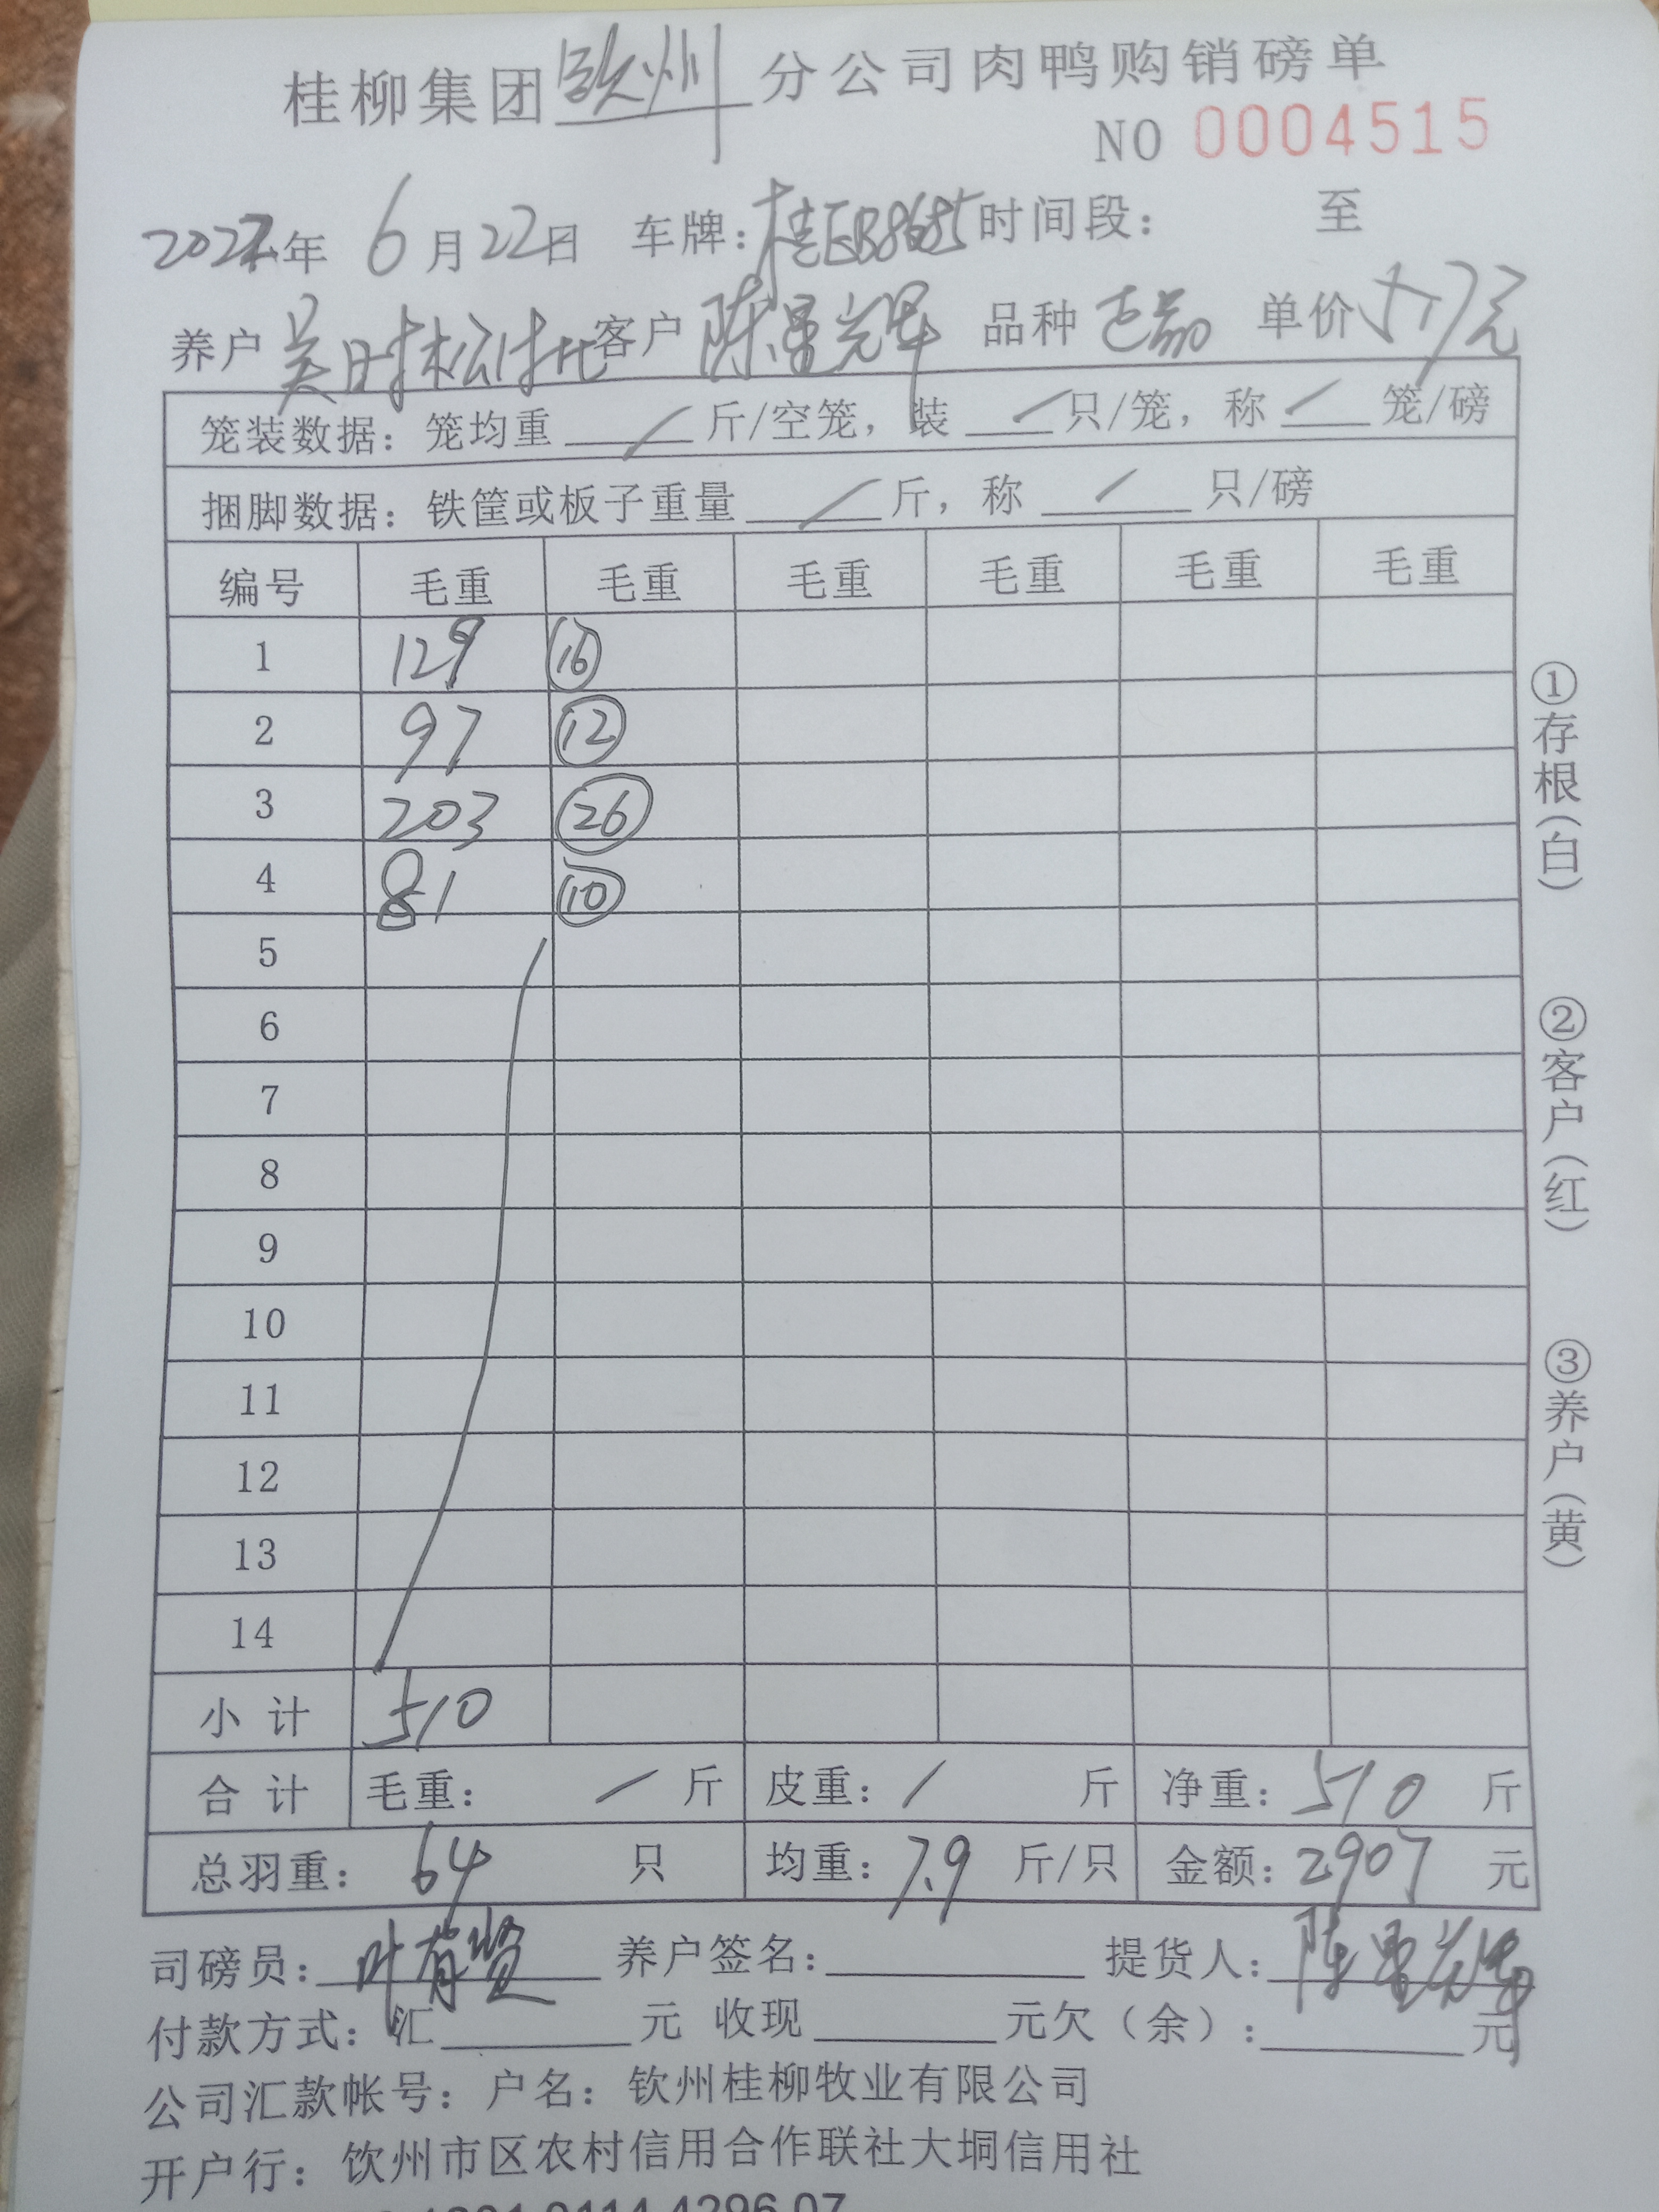 桂柳集团钦州分公司肉鸭购销磅单
NO 0004515
2022年 6月22日 车牌:桂EB8685时间段: 至
养户 吴时松 客户 陈星光辉 品种 单价5.7元
笼装数据: 笼均重 / 斤/空笼, 装 / 只/笼, 称 / 笼/磅
捆脚数据: 铁筐或板子重量 / 斤, 称 / 只/磅
编号 毛重 毛重 毛重 毛重 毛重 毛重
1 129 ⑯
2 97 ⑫
3 203 ㉖
4 81 ⑩
5
6
7
8
9
10
11
12
13
14
小计 510
合计 毛重: / 斤 皮重: / 斤 净重: 510 斤
总羽重: 64 只 均重: 7.9 斤/只 金额: 2907 元
司磅员: 叶有贤 养户签名: 提货人: 陈星光辉
付款方式: 汇 元 收现 元欠(余): 元
公司汇款帐号: 户名: 钦州桂柳牧业有限公司
开户行: 钦州市区农村信用合作联社大垌信用社
①存根(白)
②客户(红)
③养户(黄)